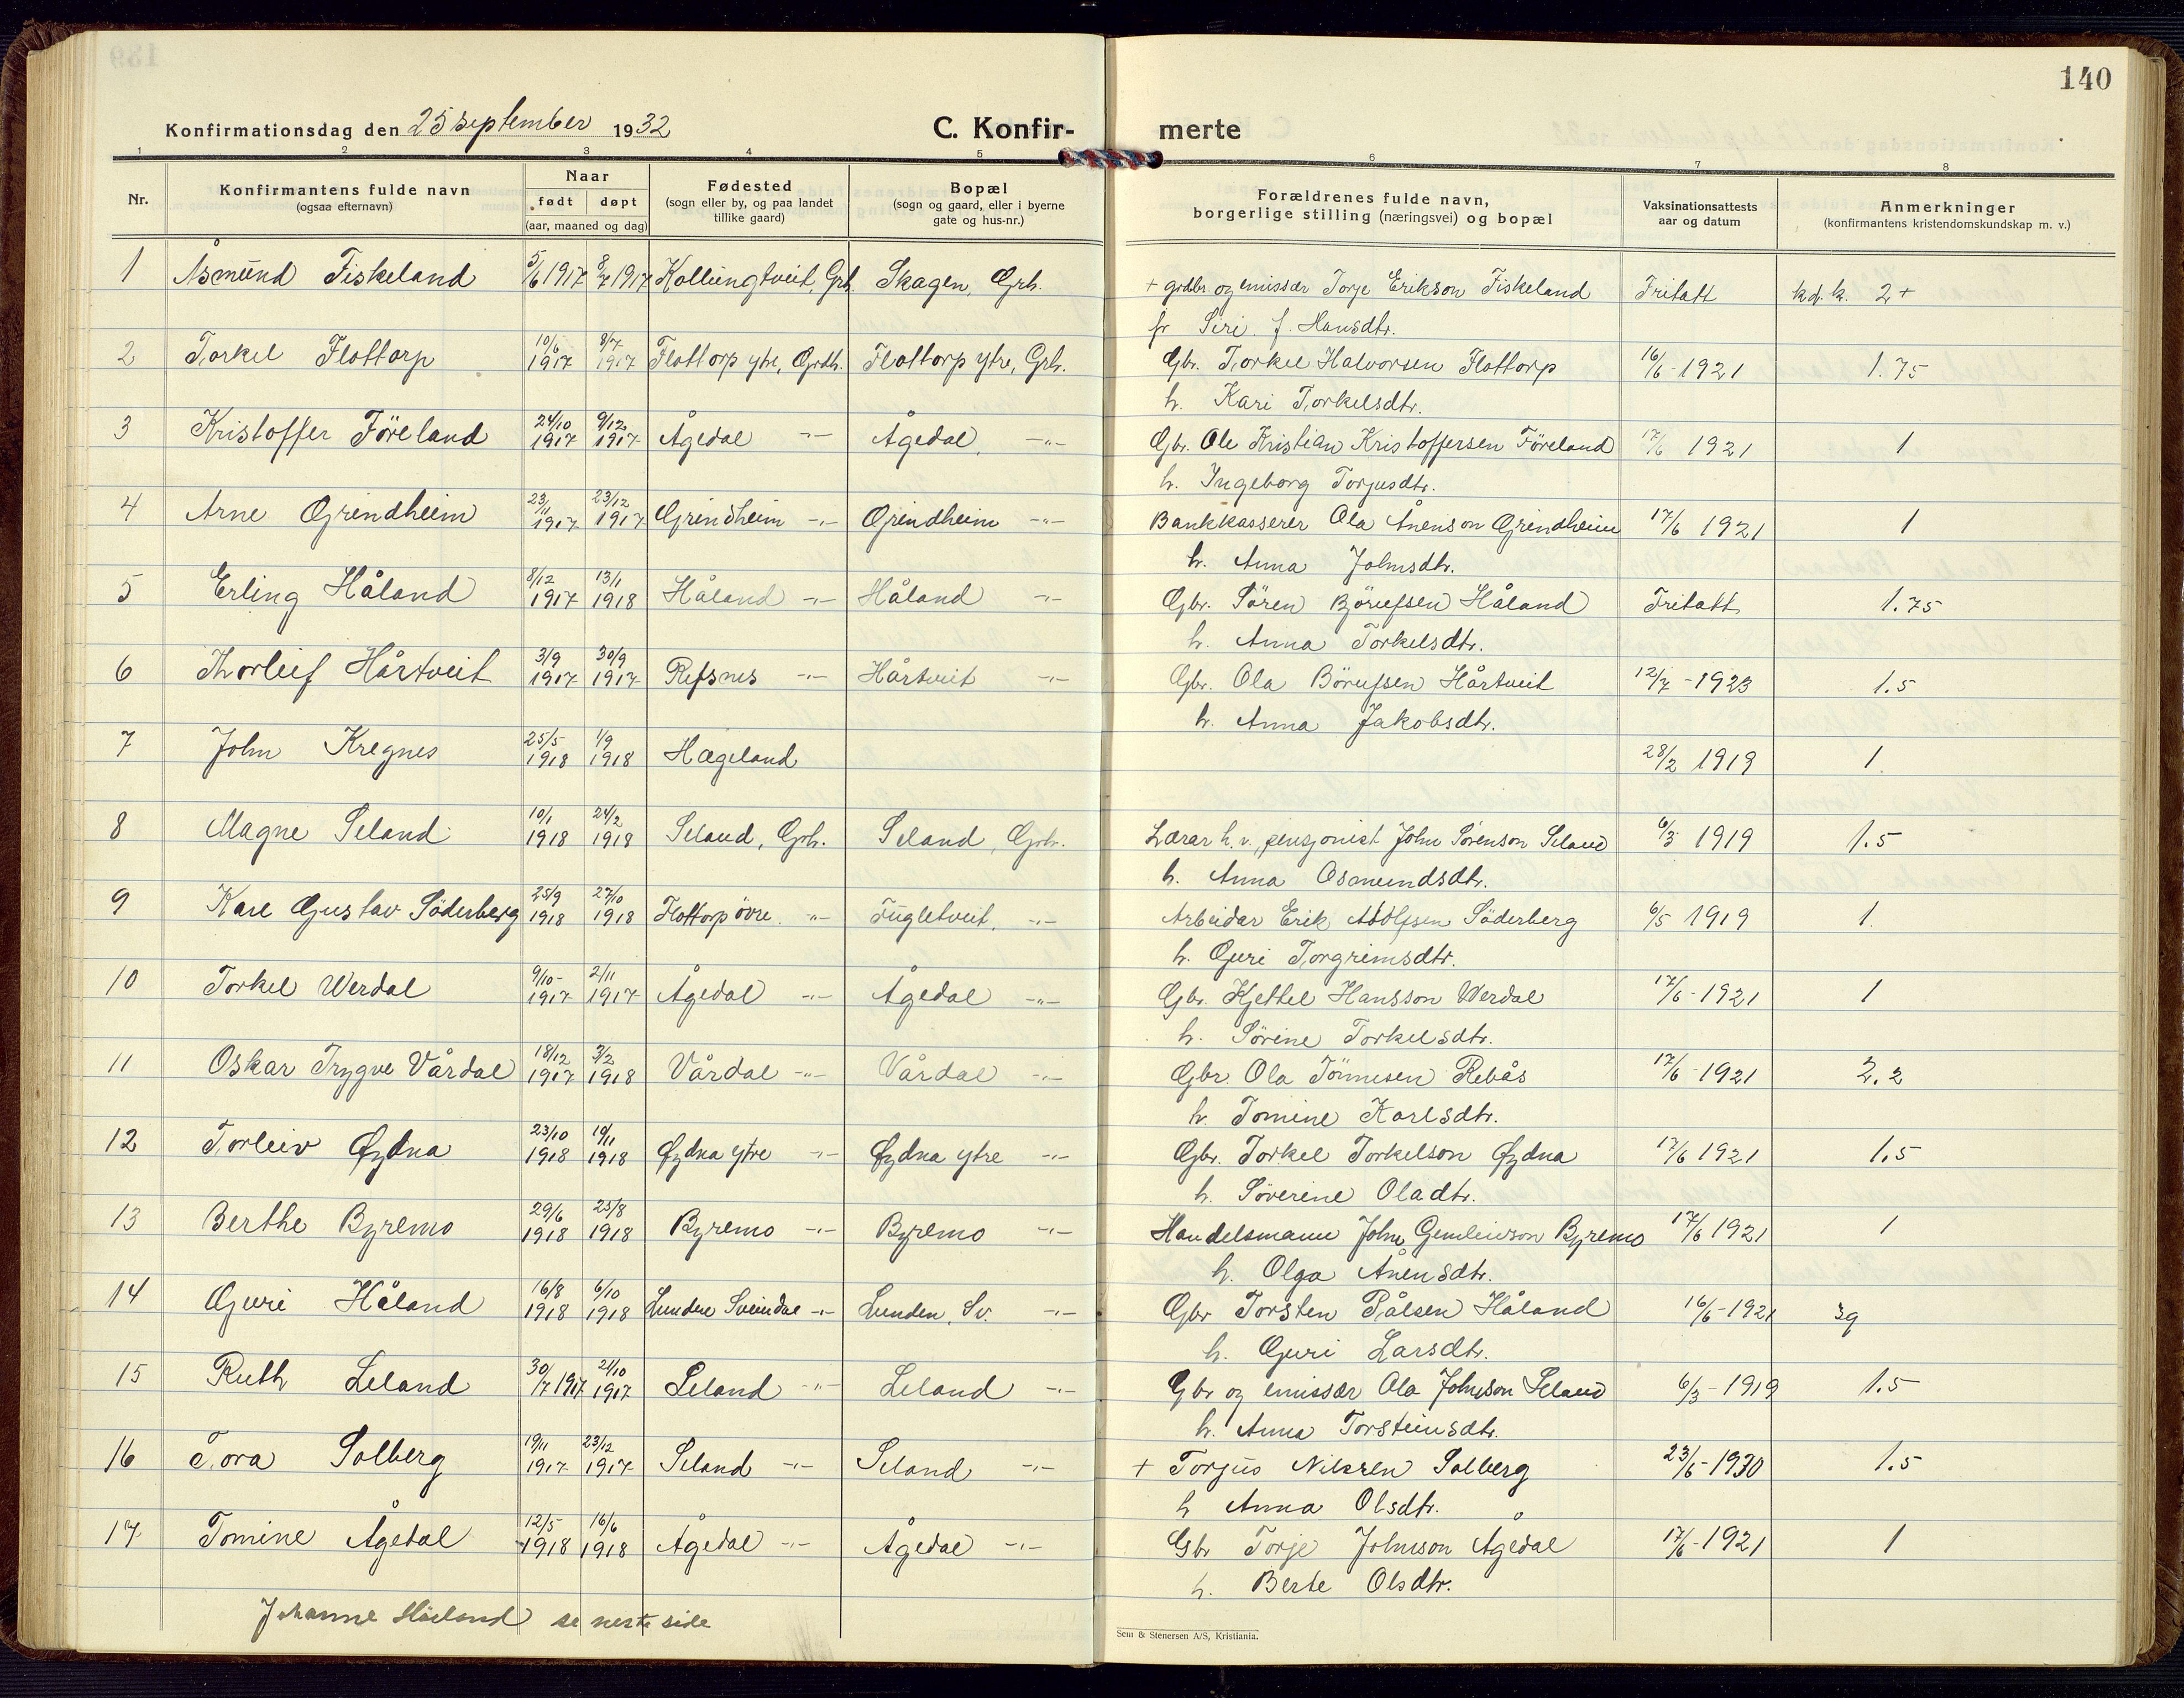 140
Konfirmationsdag den 25 september 1932
C. Konfir- merte
1 2 3 4 5 6 7 8
Nr.
Konfirmantens fulde navn (ogsaa efternavn)
Naar født døpt (aar, maaned og dag)
Fødested (sogn eller by, og paa landet tillike gaard)
Bopæl (sogn og gaard, eller i byerne gate og hus-nr.)
Forældrenes fulde navn, borgerlige stilling (næringsvei) og bopæl
Vaksinationsattests aar og datum
Anmerkninger (konfirmantens kristendomskundskap m. v.)
1 Åsmund Fiskeland 5/6 1917 8/7 1917 Kollungtveit, Grh. Skagen, Grh. + grdbr. og emissær Torje Erikson Fiskeland Fritatt k.d.k. 2+
fr Siri f. Hansdtr.
2 Torkel Flottorp 10/6 1917 8/7 1917 Flottorp ytre, Grdh. Flottorp ytre, Grh. Gbr. Torkel Halvorsen Flottorp 16/6 - 1921 1.75
h. Kari Torkelsdtr.
3 Kristoffer Föreland 24/10 1917 9/12 1917 Ågedal -"- Ågedal, -"- Gbr. Ole Kristian Kristoffersen Föreland 17/6 1921 1
h. Ingeborg Torjusdtr.
4 Arne Grindheim 23/11 1917 23/12 1917 Grindheim -"- Grindheim -"- Bankkasserer Ola Ånenson Grindheim 17/6 1921 1
h. Anna Johnsdtr.
5 Erling Håland 8/12 1917 13/1 1918 Håland -"- Håland -"- Gbr. Sören Börufsen Håland Fritatt 1.75
h. Anna Torkelsdtr.
6 Thorleif Hårtveit 3/9 1917 30/9 1917 Refsnes -"- Hårtveit -"- Gbr. Ola Börufsen Hårtveit 12/7 - 1923 1.5
h. Anna Jakobsdtr.
7 John Kregnes 25/5 1918 1/9 1918 Hægeland 28/2 1919 1.
8 Magne Seland 10/1 1918 24/2 1918 Seland, Grh. Seland, Grh. Lærar h. v. pensjonist John Sörenson Seland 6/3 1919 1.5
h. Anna Osmundsdtr.
9 Kare Gustav Söderberg 25/9 1918 27/10 1918 Flottorp övre. -"- Fugletveit, -"- Arbeidar Erik Adolfsen Söderberg 6/5 1919 1.
h. Guri Torgrimsdtr.
10 Torkel Werdal 9/10 - 1917 2/11 1917 Ågedal -"- Ågedal -"- Gbr. Kjettel Hansson Werdal 17/6 - 1921 1
h. Sörine Torkelsdtr.
11 Oskar Trygve Vårdal 18/12 1917 3/2 1918 Vårdal -"- Vårdal -"- Gbr. Ola Tönnesen Rebås 17/6 - 1921 2.2
h. Tomine Karlsdtr.
12 Torleiv Øydna 23/10 1918 19/11 1918 Øydna ytre -"- Øydna ytre -"- Gbr. Torkel Torkelson Øydna 17/6 1921 1.5
h. Söverine Oladtr.
13 Berthe Byremo 29/6 1918 25/8 1918 Byremo -"- Byremo -"- Handelsmann John Gemleivson Byremo 17/6 1921 1
h. Olga Ånensdtr.
14 Guri Håland 16/8 1918 6/10 1918 Lunden Sveindal -"- Lunden, Sv. -"- Gbr Torsten Pålsen Håland 16/6 - 1921 3g
h. Guri Larsdtr.
15 Ruth Seland 30/7 1917 21/10 1917 Seland -"- Seland -"- Gbr og emissær Ola Johnson Seland 6/3 - 1919 1.5
h. Anna Torsteinsdtr.
16 Tora Solberg 19/11 1917 23/12 1917 Seland -"- Seland -"- + Torjus Nilssen Solberg 23/6 - 1930 1.5
h Anna Olsdtr.
17 Tomine Ågedal 12/5 1918 16/6 1918 Ågedal -"- Ågedal -"- Gbr Torje Johnson Ågedal 17/6 - 1921 1
h. Berte Olsdtr.
Johanne Håeland se neste side
Sem & Stenersen A/S, Kristiania.